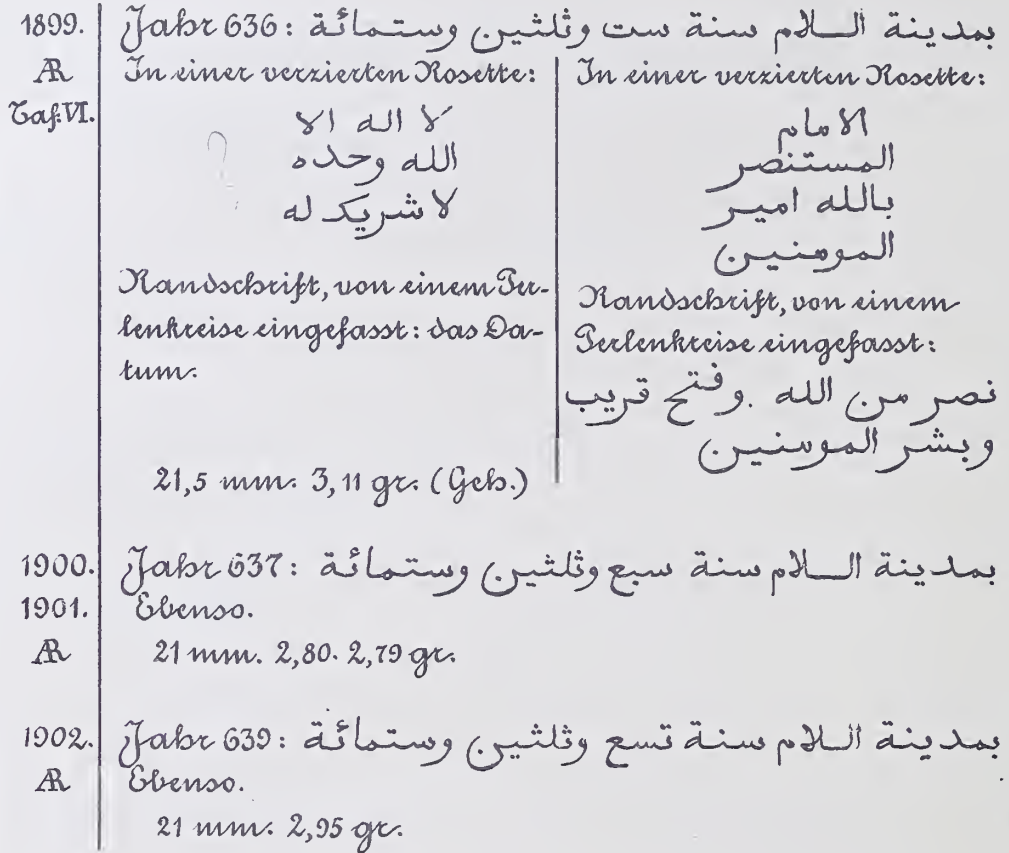 1899. Jahr 636: بمدينة السلام سنة ست وثلثين وستمائة
AR In einer verzierten Rosette:
Taf. VI.
لا اله الا
الله وحده
لا شريك له
Randschrift, von einem Per-
lenkreise eingefasst: das Da-
tum.
In einer verzierten Rosette:
الامام
المستنصر
بالله امير
المومنين
Randschrift, von einem
Perlenkreise eingefasst:
نصر من الله وفتح قريب
وبشر المومنين
21,5 mm. 3,11 gr. (Geh.)
1900. Jahr 637: بمدينة السلام سنة سبع وثلثين وستمائة
1901. Ebenso.
AR 21 mm. 2,80. 2,79 gr.
1902. Jahr 639: بمدينة السلام سنة تسع وثلثين وستمائة
AR Ebenso.
21 mm. 2,95 gr.